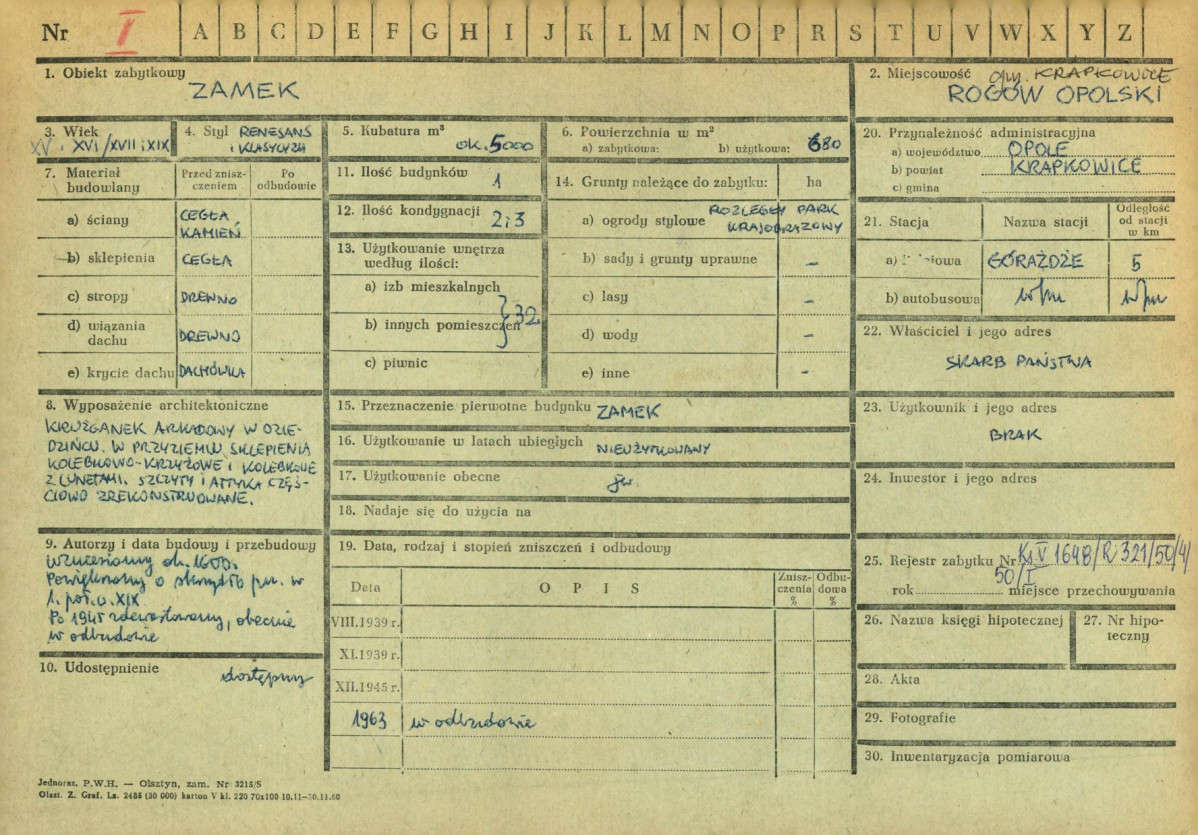 Nr I A B C D E F G H I J K L M N O P R S T U V W X Y Z
1. Obiekt zabytkowy
ZAMEK
2. Miejscowość gm. KRAPKOWICE
ROGÓW OPOLSKI
3. Wiek
XV i XVI/XVII i XIX
4. Styl RENESANS
i KLASYCYZM
5. Kubatura m³
ok. 5000
6. Powierzchnia w m²
a) zabytkowa: b) użytkowa: 680
7. Materiał
budowlany
Przed znisz-
czeniem
Po
odbudowie
a) ściany CEGŁA
KAMIEŃ
b) sklepienia CEGŁA
c) stropy DREWNO
d) wiązania
dachu DREWNO
e) krycie dachu DACHÓWKA
8. Wyposażenie architektoniczne
KRUŻGANEK ARKADOWY W DZIE-
DZIŃCU. W PRZYZIEMIU SKLEPIENIA
KOLEBKOWO-KRZYŻOWE i KOLEBKOWE
Z LUNETAMI. SZCZYTY i ATTYKA CZĘŚ-
CIOWO ZREKONSTRUOWANE.
9. Autorzy i data budowy i przebudowy
Wzniesiony ok. 1600.
Powiększony o skrzydło pn. w
1. poł. w. XIX
Po 1945 zdewastowany, obecnie
w odbudowie
10. Udostępnienie
dostępny
11. Ilość budynków
1
12. Ilość kondygnacji
2 i 3
13. Użytkowanie wnętrza
według ilości:
a) izb mieszkalnych
b) innych pomieszczeń 32
c) piwnic
14. Grunty należące do zabytku: ha
a) ogrody stylowe ROZLEGŁY PARK
KRAJOBRAZOWY
b) sady i grunty uprawne –
c) lasy –
d) wody –
e) inne –
15. Przeznaczenie pierwotne budynku ZAMEK
16. Użytkowanie w latach ubiegłych NIEUŻYTKOWANY
17. Użytkowanie obecne jw.
18. Nadaje się do użycia na
19. Data, rodzaj i stopień zniszczeń i odbudowy
Data O P I S Znisz-
czenia
% Odbu-
dowa
%
VIII.1939 r.
XI.1939 r.
XII.1945 r.
1963 w odbudowie
20. Przynależność administracyjna
a) województwo OPOLE
b) powiat KRAPKOWICE
c) gmina
21. Stacja Nazwa stacji Odległość
od stacji
w km
a) GÓRAŻDŻE 5
b) autobusowa w/m w/m
22. Właściciel i jego adres
SKARB PAŃSTWA
23. Użytkownik i jego adres
BRAK
24. Inwestor i jego adres
25. Rejestr zabytku Nr Kl.V 1648/R 321/50/4/
50/I
rok miejsce przechowywania
26. Nazwa księgi hipotecznej
27. Nr hipo-
teczny
28. Akta
29. Fotografie
30. Inwentaryzacja pomiarowa
Jednoraz. P.W.H. — Olsztyn, zam. Nr 3215/S
Olszt. Z. Graf. Lz. 2485 (30 000) karton V kl. 220 70x100 10.11—30.11.60